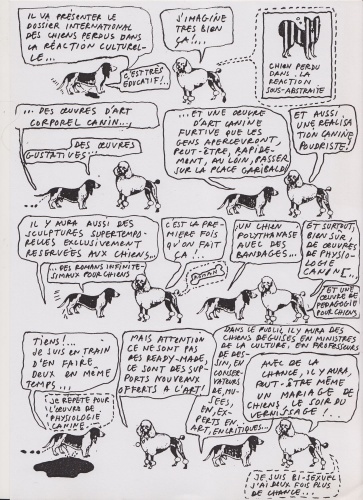 IL VA PRÉSENTER LE
DOSSIER INTERNATIONAL
DES CHIENS PERDUS DANS
LA RÉACTION CULTUREL-
LE...
C'EST TRÈS
ÉDUCATIF!..
J'IMAGINE
TRES BIEN
ÇA!!...
CHIEN PERDU
DANS LA
REACTION
SOUS-ABSTRAITE
...DES ŒUVRES D'ART
CORPOREL CANIN...,
DES ŒUVRES
GUSTATIVES...
...ET UNE ŒUVRE
D'ART CANINE
FURTIVE QUE LES
GENS APERCEVRONT
PEUT-ÊTRE, RAPIDE-
MENT, AU LOIN, PASSER
SUR LA PLACE GARIBALDI
ET AUSSI
UNE REALISA
TION CANINE
POUDRISTE!
IL Y AURA AUSSI DES
SCULPTURES SUPERTEMPO-
RELLES EXCLUSIVEMENT
RESERVÉES AUX CHIENS...
...DES ROMANS INFINITE-
SIMAUX POUR CHIENS
C'EST LA PRE-
MIERE FOIS
QU'ON FAIT
ÇA!...
UN CHIEN
POLYTHANASE
AVEC DES
BANDAGES...
ET SURTOUT,
BIEN SUR,
DE ŒUVRES
DE PHYSIO-
LOGIE
CANINE..
ET UNE
ŒUVRE DE
PEDAGOGIE POUR
CHIENS
TIENS!...
JE SUIS EN TRAIN
D'EN FAIRE
DEUX EN MÊME
TEMPS...
JE RÉPÈTE POUR
L'ŒUVRE DE
PHYSIOLOGIE
CANINE..
MAIS ATTENTION
CE NE SONT PAS
DES READY-MADE,
CE SONT DES SUP-
PORTS NOUVEAUX
OFFERTS A L'ART!
DANS LE PUBLIC, IL Y AURA DES
CHIENS DÉGUISÉS EN MINISTRES
DE LA CULTURE, EN PROFESSEURS
DE DES-
SIN, EN
CONSER-
VATEURS
DE MU-
SÉES,
EN EX-
PERTS EN
ART, EN CRITIQUES...
AVEC DE LA
CHANCE, IL Y AURA,
PEUT-ÊTRE MÊME
UN MARIAGE DE
CHIENS, LE SOIR DU
VERNISSAGE!...
JE SUIS BI-SEXUEL
J'AI DEUX FOIS PLUS
DE CHANCE...